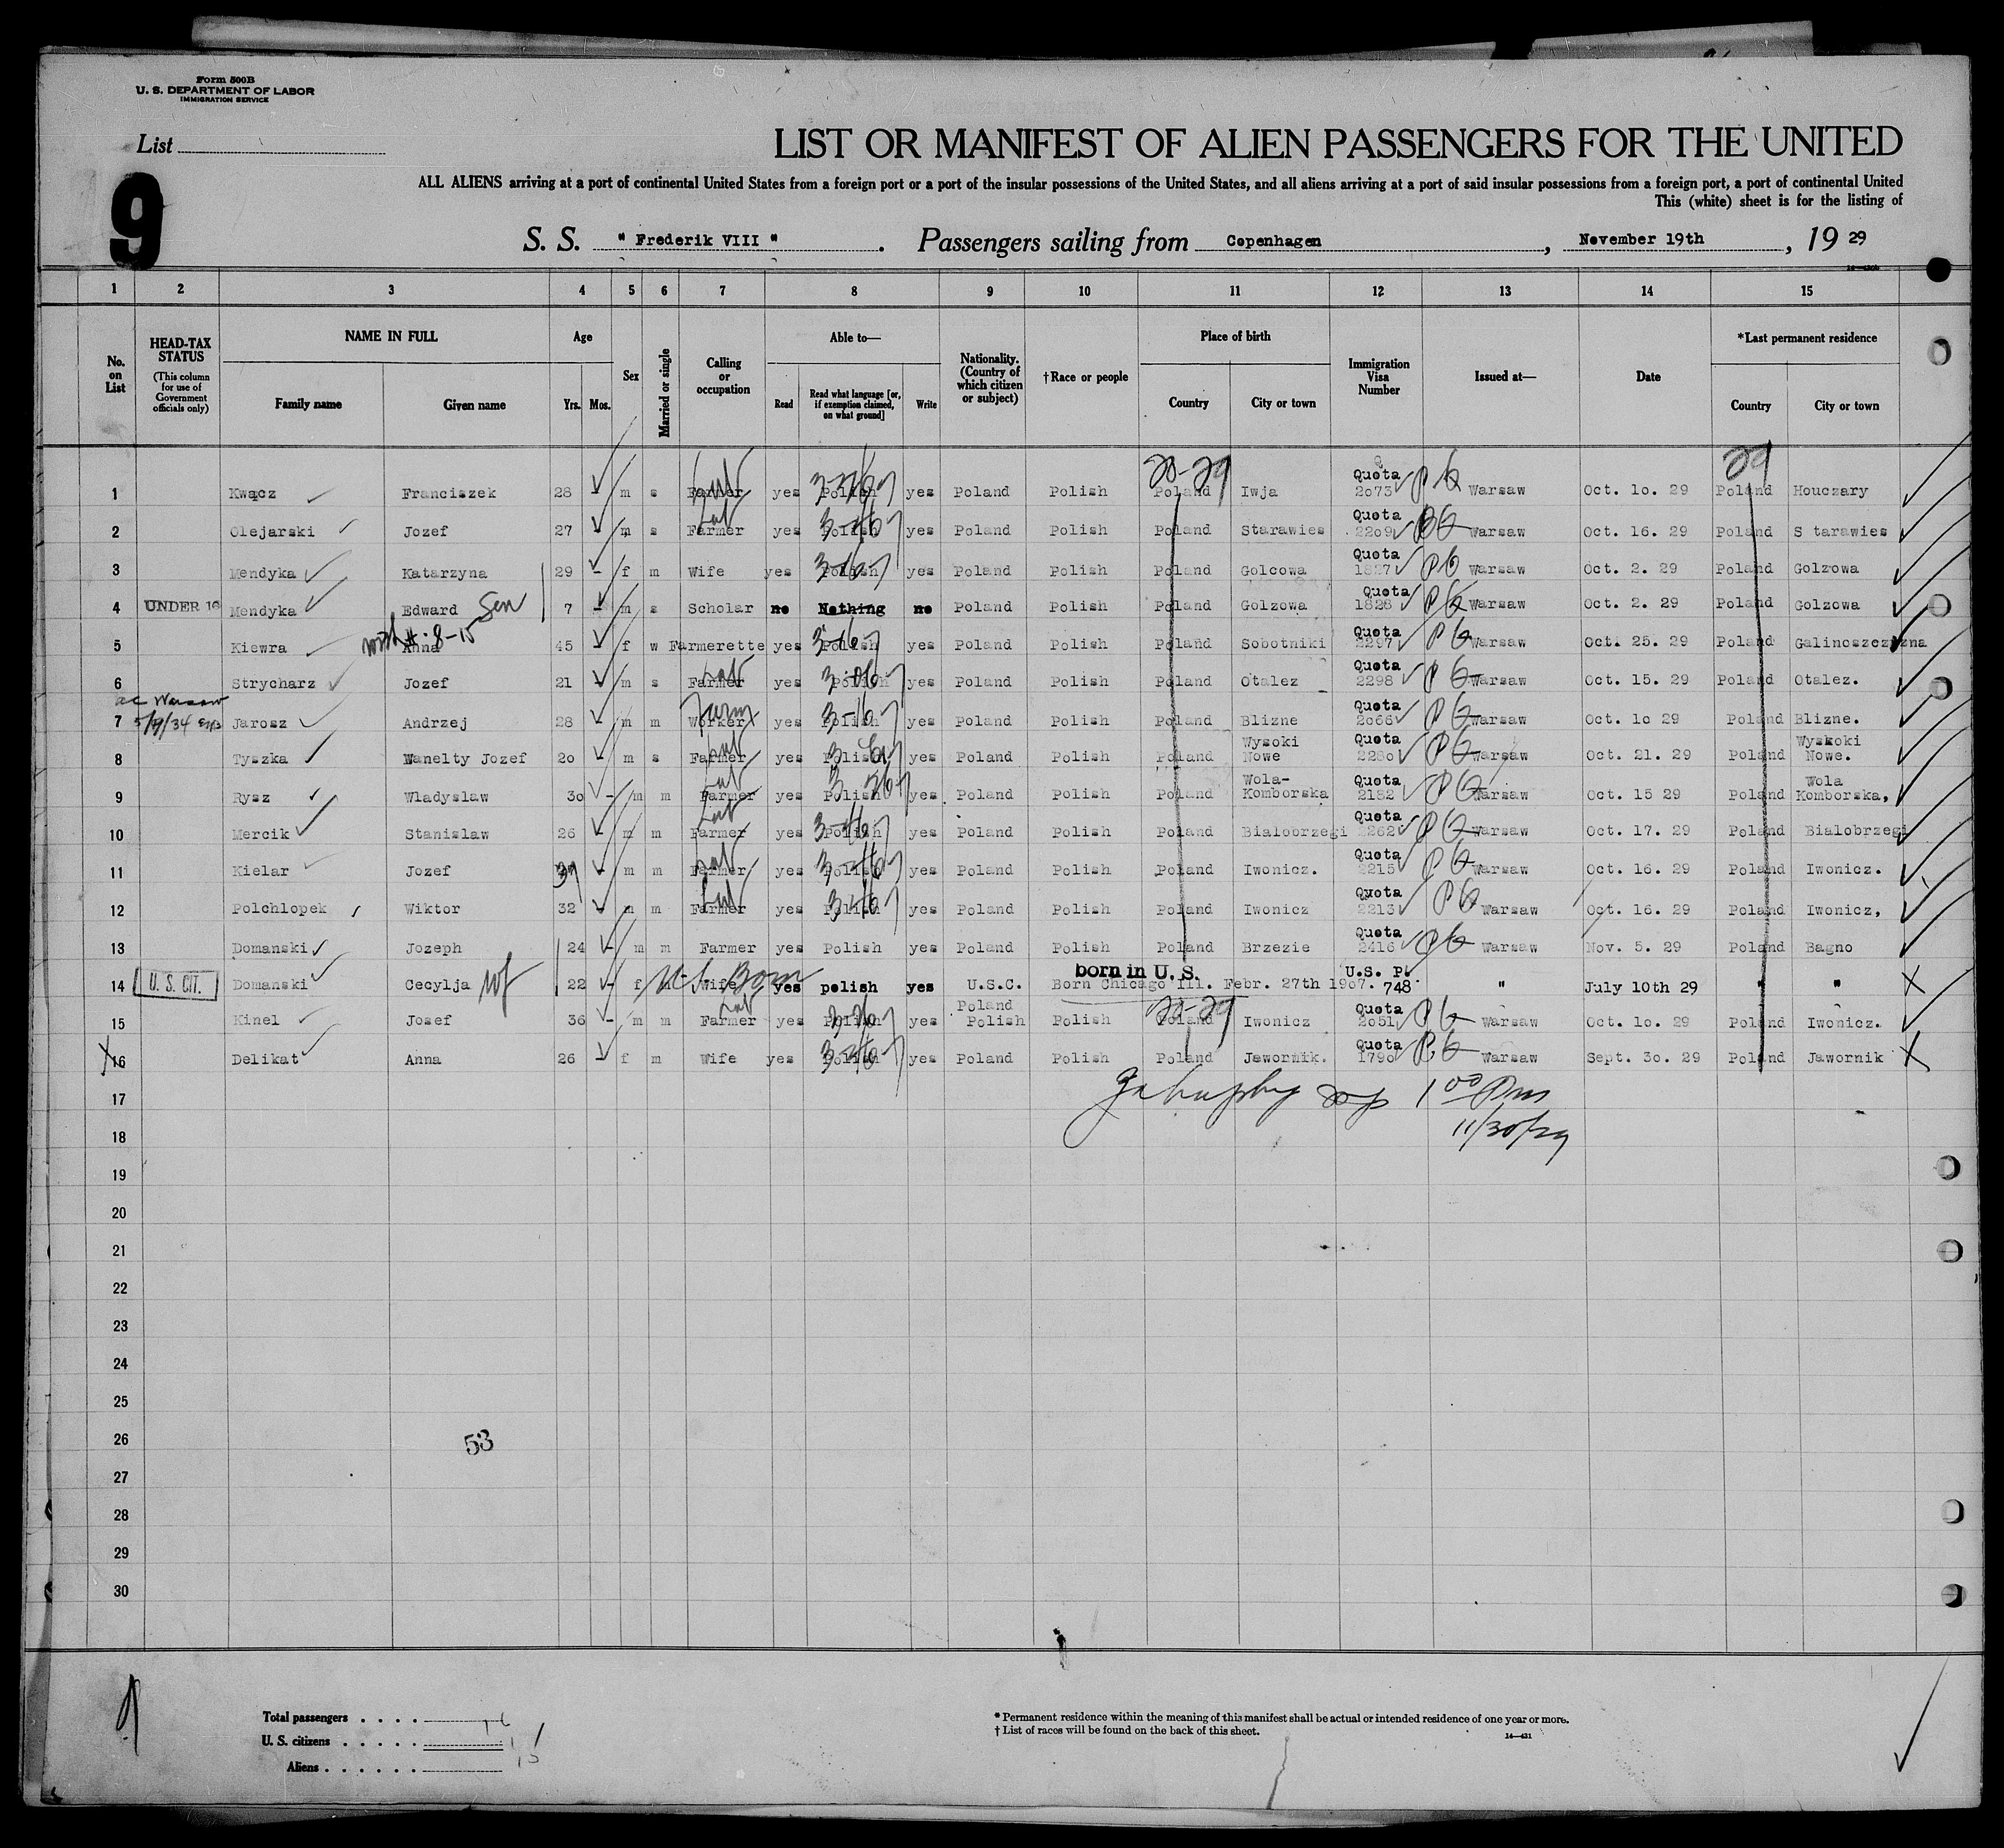 Form 500B
U. S. DEPARTMENT OF LABOR
IMMIGRATION SERVICE
List
9
LIST OR MANIFEST OF ALIEN PASSENGERS FOR THE UNITED
ALL ALIENS arriving at a port of continental United States from a foreign port or a port of the insular possessions of the United States, and all aliens arriving at a port of said insular possessions from a foreign port, a port of continental United
This (white) sheet is for the listing of
S. S. " Frederik VIII " . Passengers sailing from Copenhagen , November 19th , 19 29
1 2 3 4 5 6 7 8 9 10 11 12 13 14 15
No. on List
HEAD-TAX STATUS (This column for use of Government officials only)
NAME IN FULL Family name Given name
Age Yrs. Mos.
Sex
Married or single
Calling or occupation
Able to— Read Read what language [or, if exemption claimed, on what ground] Write
Nationality. (Country of which citizen or subject)
† Race or people
Place of birth Country City or town
Immigration Visa Number
Issued at—
Date
*Last permanent residence Country City or town
20-29 29
1 Kwącz Franciszek 28 - m s Farmer yes Polish yes Poland Polish Poland Iwja Quota 2073 Warsaw Oct. 10. 29 Poland Houczary
2 Olejarski Jozef 27 - m s Farmer yes Polish yes Poland Polish Poland Starawies Quota 2209 Warsaw Oct. 16. 29 Poland S tarawies
3 Mendyka Katarzyna 29 - f m Wife yes Polish yes Poland Polish Poland Golcowa Quota 1827 Warsaw Oct. 2. 29 Poland Golzowa
4 UNDER 16 Mendyka Edward Son 7 - m s Scholar no Nothing no Poland Polish Poland Golzowa Quota 1828 Warsaw Oct. 2. 29 Poland Golzowa
with #: 8-15
5 Kiewra Anna 45 - f w Farmerette yes Polish yes Poland Polish Poland Sobotniki Quota 2297 Warsaw Oct. 25. 29 Poland
6 Strycharz Jozef 21 - m s Farmer yes Polish yes Poland Polish Poland Otalez Quota 2298 Warsaw Oct. 15. 29 Poland Otalez.
ac Warsaw
7 Jarosz Andrzej 28 - m m Farm Worker yes Polish yes Poland Polish Poland Blizne Quota 2066 Warsaw Oct. 10 29 Poland Blizne.
8 Tyszka Wanelty Jozef 20 - m s Farmer yes Polish yes Poland Polish Poland Wysoki Nowe Quota 2280 Warsaw Oct. 21. 29 Poland Wyskoki Nowe.
9 Rysz Wladyslaw 30 - m m Farmer yes Polish yes Poland Polish Poland Wola-Komborska Quota 2182 Warsaw Oct. 15 29 Poland Wola Komborska,
10 Mercik Stanislaw 26 - m m Farmer yes Polish yes Poland Polish Poland Bialobrzegi Quota 2262 Warsaw Oct. 17. 29 Poland Bialobrzegi
11 Kielar Jozef 37 - m m Farmer yes Polish yes Poland Polish Poland Iwonicz. Quota 2215 Warsaw Oct. 16. 29 Poland Iwonicz.
12 Polchlopek Wiktor 32 - m m Farmer yes Polish yes Poland Polish Poland Iwonicz Quota 2213 Warsaw Oct. 16. 29 Poland Iwonicz,
13 Domanski Jozeph 24 - m m Farmer yes Polish yes Poland Polish Poland Brzezie Quota 2416 Warsaw Nov. 5. 29 Poland Bagno
born in U. S.
14 U. S. CIT. Domanski Cecylja wf 22 - f U.S. Born Wife yes polish yes U.S.C. Born Chicago Ill. Febr. 27th 1907. U.S. P. 748 " July 10th 29 " "
20-29
15 Kinel Josef 36 - m m Farmer yes Polish yes Poland Polish Polish Poland Iwonicz Quota 2051 Warsaw Oct. 10. 29 Poland Iwonicz.
16 Delikat Anna 26 - f m Wife yes Polish yes Poland Polish Poland Jawornik. Quota 1790 Warsaw Sept. 30. 29 Poland Jawornik
17 1 00 Pm
18 11/30/29
19
20
21
22
23
24
25
26 53
27
28
29
30
Total passengers . . . . 16
U. S. citizens . . . . . 1
Aliens . . . . . . 15
* Permanent residence within the meaning of this manifest shall be actual or intended residence of one year or more.
† List of races will be found on the back of this sheet.
14—431